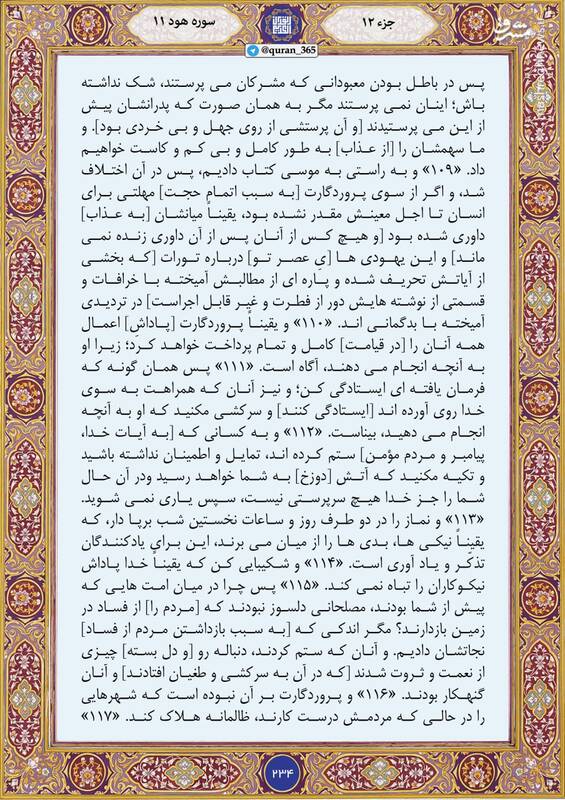 جزء ۱۲
سوره هود ۱۱
@quran_365
مشرق
پس در باطل بودن معبودانی که مشرکان می پرستند، شک نداشته
باش؛ اینان نمی پرستند مگر به همان صورت که پدرانشان پیش
از این می پرستیدند [و آن پرستشی از روی جهل و بی خردی بود]. و
ما سهمشان را [از عذاب] به طور کامل و بی کم و کاست خواهیم
داد. «۱۰۹» و به راستی به موسی کتاب دادیم، پس در آن اختلاف
شد، و اگر از سوی پروردگارت [به سبب اتمامِ حجت] مهلتی برای
انسان تا اجل معینش مقدر نشده بود، یقیناً میانشان [به عذاب]
داوری شده بود [و هیچ کس از آنان پس از آن داوری زنده نمی
ماند] و این یهودی ها [یِ عصر تو] درباره تورات [که بخشی
از آیاتش تحریف شده و پاره ای از مطالبش آمیخته با خرافات و
قسمتی از نوشته هایش دور از فطرت و غیر قابل اجراست] در تردیدی
آمیخته با بدگمانی اند. «۱۱۰» و یقیناً پروردگارت [پاداشِ] اعمال
همه آنان را [در قیامت] کامل و تمام پرداخت خواهد کرد؛ زیرا او
به آنچه انجام می دهند، آگاه است. «۱۱۱» پس همان گونه که
فرمان یافته ای ایستادگی کن؛ و نیز آنان که همراهت به سوی
خدا روی آورده اند [ایستادگی کنند] و سرکشی مکنید که او به آنچه
انجام می دهید، بیناست. «۱۱۲» و به کسانی که [به آیات خدا،
پیامبر و مردم مؤمن] ستم کرده اند، تمایل و اطمینان نداشته باشید
و تکیه مکنید که آتش [دوزخ] به شما خواهد رسید ودر آن حال
شما را جز خدا هیچ سرپرستی نیست، سپس یاری نمی شوید.
«۱۱۳» و نماز را در دو طرف روز و ساعات نخستین شب برپا دار، که
یقیناً نیکی ها، بدی ها را از میان می برند، این برای یادکنندگان
تذکر و یاد آوری است. «۱۱۴» و شکیبایی کن که یقیناً خدا پاداش
نیکوکاران را تباه نمی کند. «۱۱۵» پس چرا در میان امت هایی که
پیش از شما بودند، مصلحانی دلسوز نبودند که [مردم را] از فساد در
زمین بازدارند؟ مگر اندکی که [به سبب بازداشتن مردم از فساد]
نجاتشان دادیم. و آنان که ستم کردند، دنباله رو [و دل بسته] چیزی
از نعمت و ثروت شدند [که در آن به سرکشی و طغیان افتادند] و آنان
گنهکار بودند. «۱۱۶» و پروردگارت بر آن نبوده است که شهرهایی
را در حالی که مردمش درست کارند، ظالمانه هلاک کند. «۱۱۷»
۲۳۴